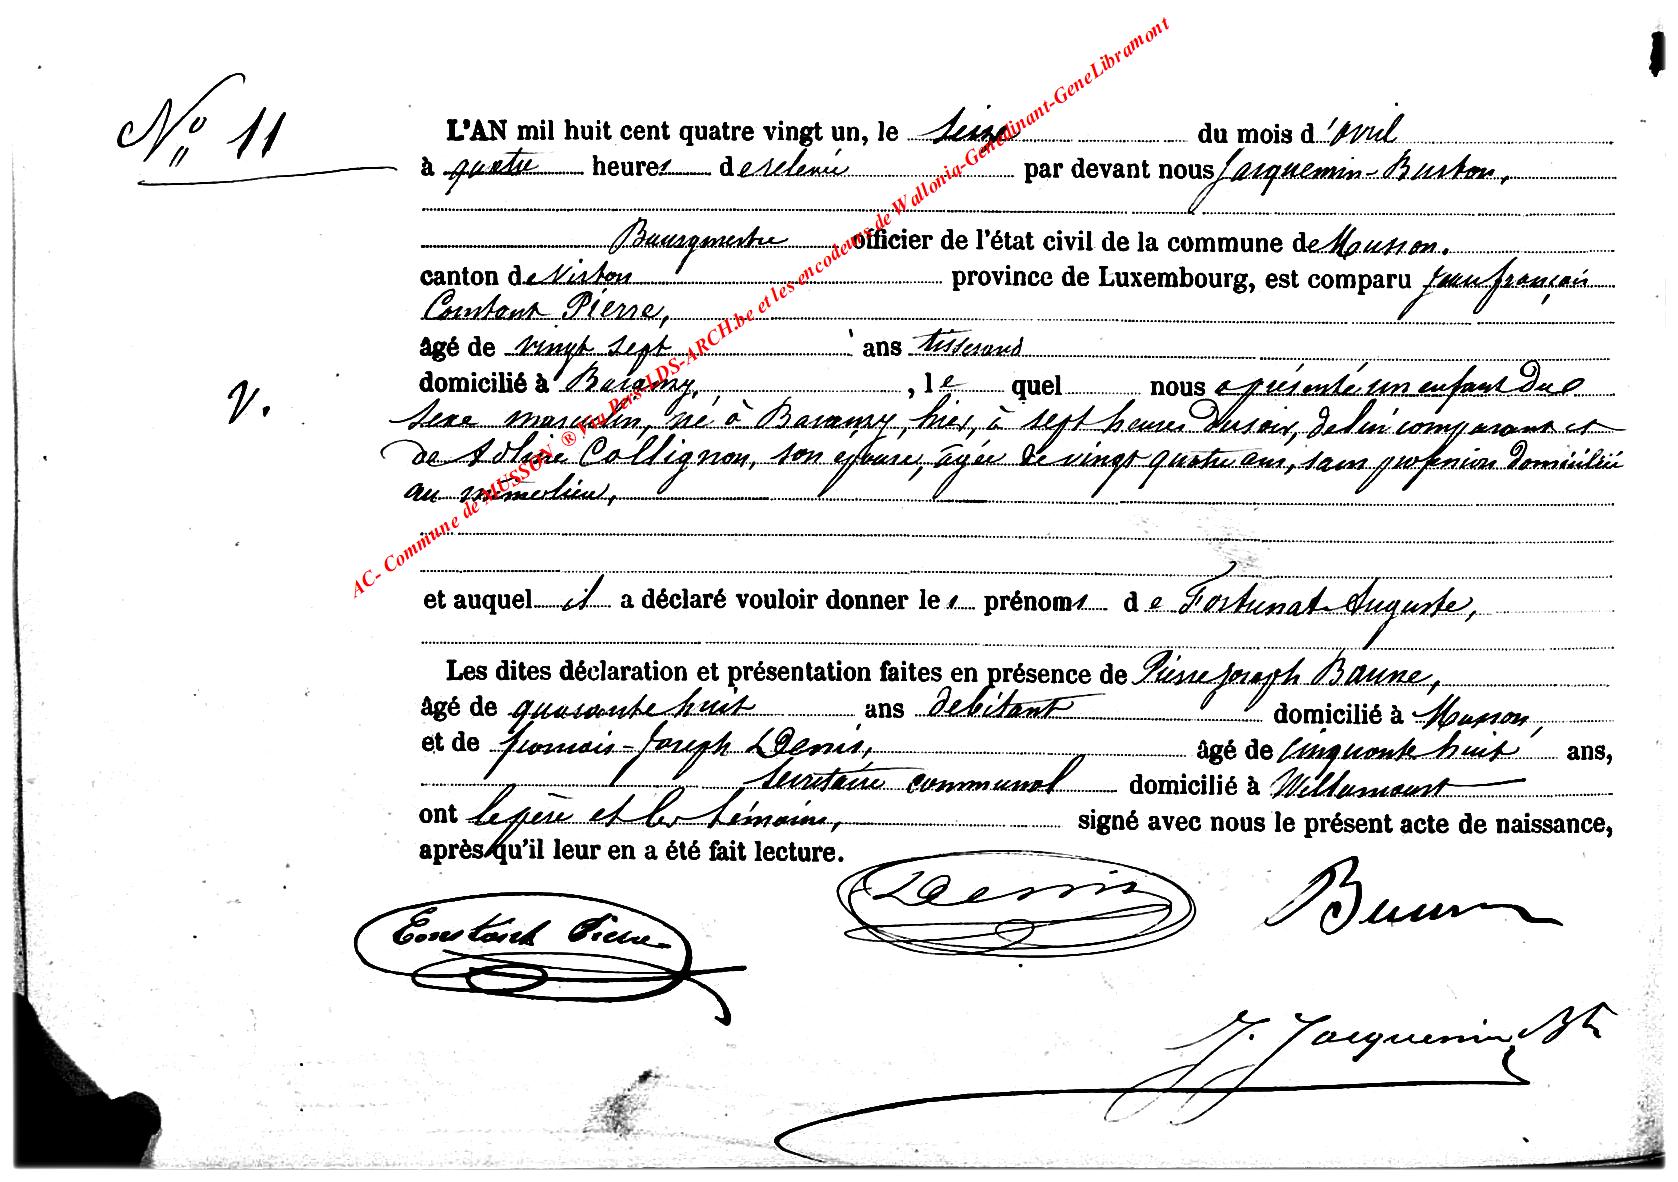 No 11
L'AN mil huit cent quatre vingt un, le seize du mois d'avril
à quatre heures de relevée par devant nous Jacquemin-Burton,
Bourgmestre officier de l'état civil de la commune de Musson.
canton de Virton province de Luxembourg, est comparu Jean françois
Constant Pierre,
âgé de vingt sept ans tisserand
domicilié à Baranzy, , le quel nous a présenté un enfant du
V.
sexe masculin, né à Baranzy, hier, à sept heures du soir, de lui comparant et
de Adline Collignon, son épouse, âgée de vingt quatre ans, sans profession domiciliée
au même lieu,
et auquel il a déclaré vouloir donner les prénoms de Fortunat Auguste,
Les dites déclaration et présentation faites en présence de Pierre Joseph Baune,
âgé de quarante huit ans débitant domicilié à Musson,
et de françois-Joseph Denis, âgé de cinquante huit ans,
secrétaire communal domicilié à Willancourt
ont le père et les témoins, signé avec nous le présent acte de naissance,
après qu'il leur en a été fait lecture.
Denis
Constant Pierre
J. Jacquemin Bt
AC- Commune de MUSSON ® Via Pers-LDS-ARCH.be et les encodeurs de Wallonia-Genedinant-GeneLibramont